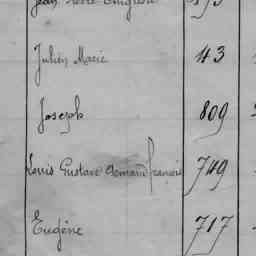 Jean
Julien Marie 43
Joseph 809
Louis Gustave Armand françois 749
Eugène 717